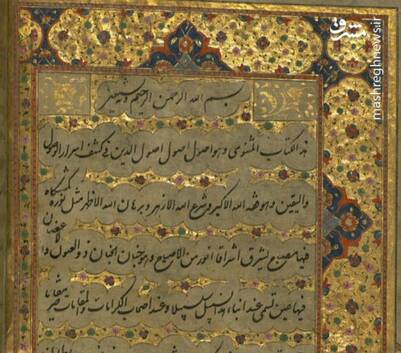 بسم الله الرحمن الرحیم
هذا کتاب المثنوی و هو اصول اصول اصول الدین فی کشف اسرار الوصول
والیقین و هو فقه الله الاکبر و شرع الله الازهر و برهان الله الاظهر مثل نوره کمشکاة
فیها مصباح یشرق اشراقا انور من الاصباح و هو جنان الجنان ذو العیون و الاغصان
فیها عین تسمی عند ابناء هذا السبیل سلسبیلا و عند اصحاب الکرامات و المقامات خیر مقاما
مشرق
mashreghnews.ir